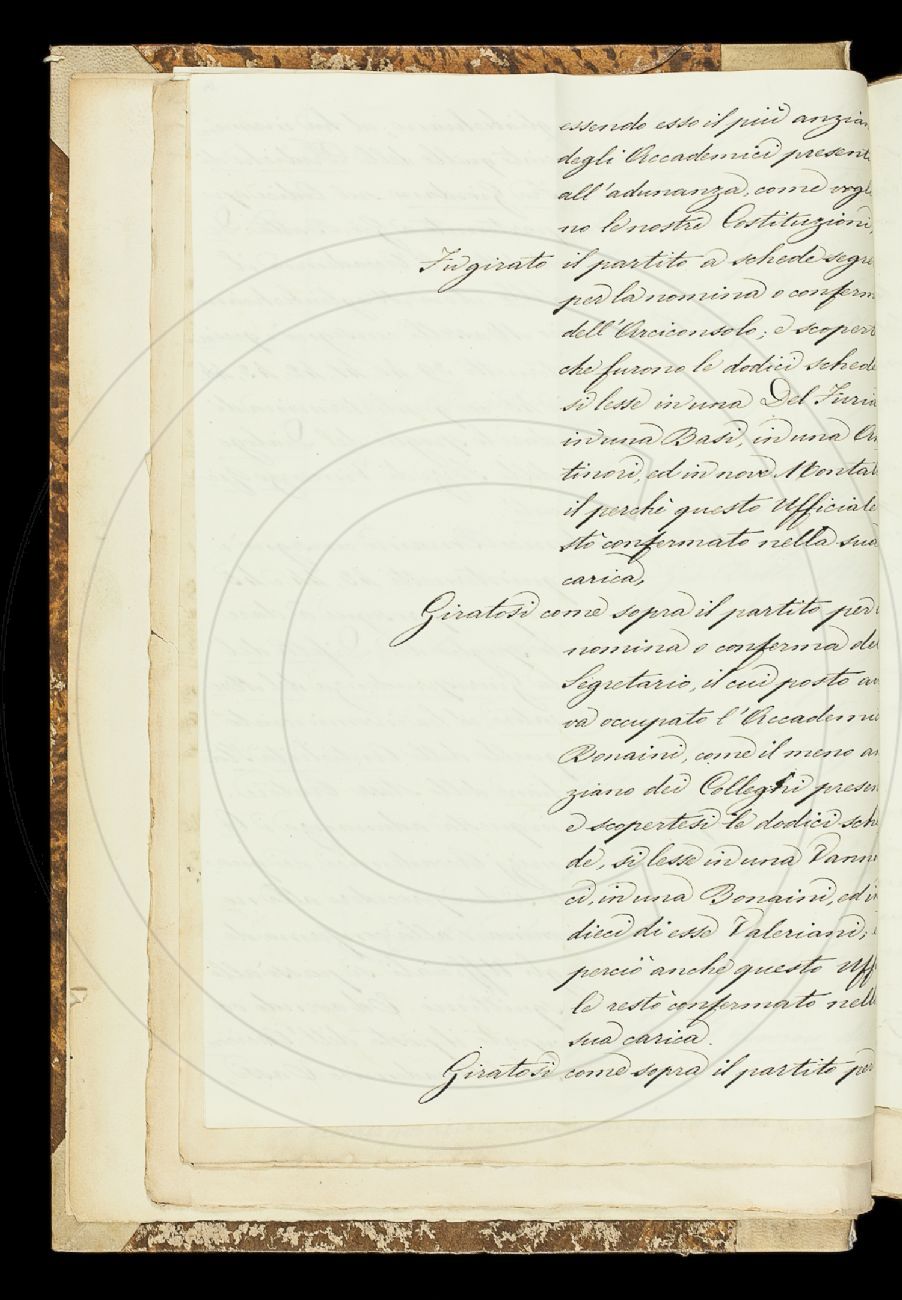 essendo esso il più anzia
degli Accademici present
all'adunanza, come vogl
no le nostre Costituzioni,
Fu girato il partito a schede segre
per la nomina o conferm
dell'Arciconsolo; e scoper
che furono le dodici schede
si lesse in una Del Furia
in una Basi, in una Ar
tinori, ed in nove Montal
il perchè questo Ufficiale
stò confermato nella sua
carica,
Giratosi come sopra il partito per
nomina o conferma del
Segretario, il cui posto av
va occupato l'Accademi
Bonaini, come il meno an
ziano dei Colleghi presen
e scopertesi le dodici sch
de, si lesse in una Vannu
ci, in una Bonaini, ed in
dieci di esse Valeriani;
perciò anche questo Uff
le restò confermato nell
sua carica.
Giratosi come sopra il partito per